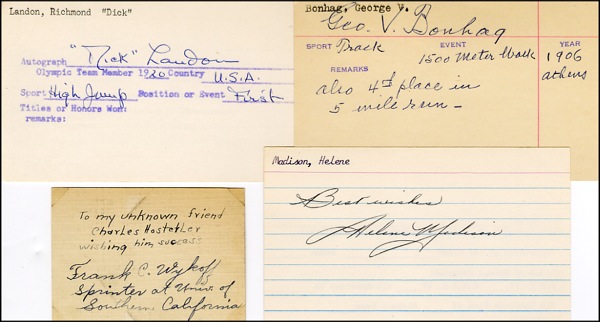 Landon, Richmond "Dick"
Autograph "Dick" Landon
Olympic Team Member 1920 Country U.S.A.
Sport High Jump Position or Event First
Titles or Honors Won:
remarks:
Bonhag, George V.
Geo. V. Bonhag
SPORT Track EVENT 1500 Meter Walk YEAR 1906
REMARKS athens
also 4th place in
5 mile run -
To my unknown friend
Charles Hostetler
wishing him success
Frank C. Wykoff
Sprinter at Univ. of
Southern California
Madison, Helene
Best wishes
Helene Madison